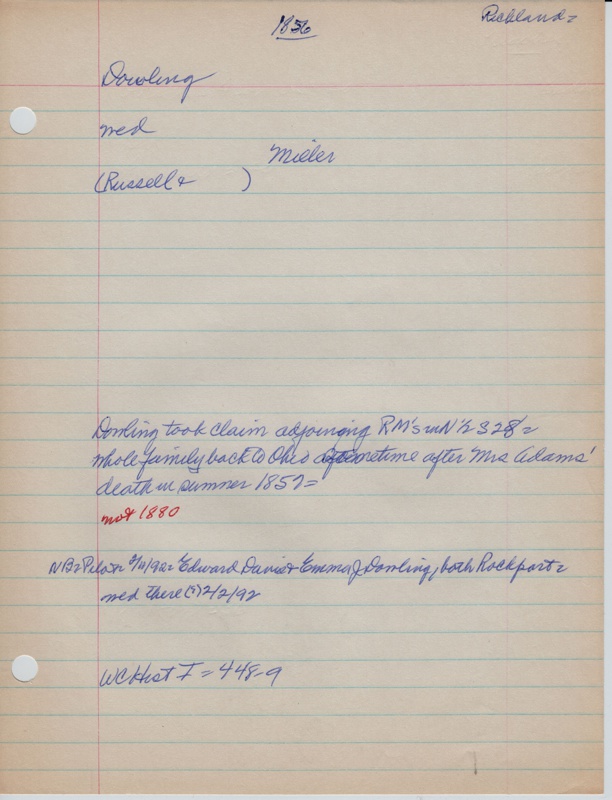 1856
Richland=
Dowling
med
Miller
(Russell &        )
Dowling took claim adjoining RM's in N 1/2 S 28=
whole family back to Ohio sometime after Mrs Adams'
death in summer 1857=
not 1880
NB= Pilot= 2/11/92= Edward Davis & Emma J Dowling, both Rockport=
med there (?) 2/2/92
WCHist I = 448-9